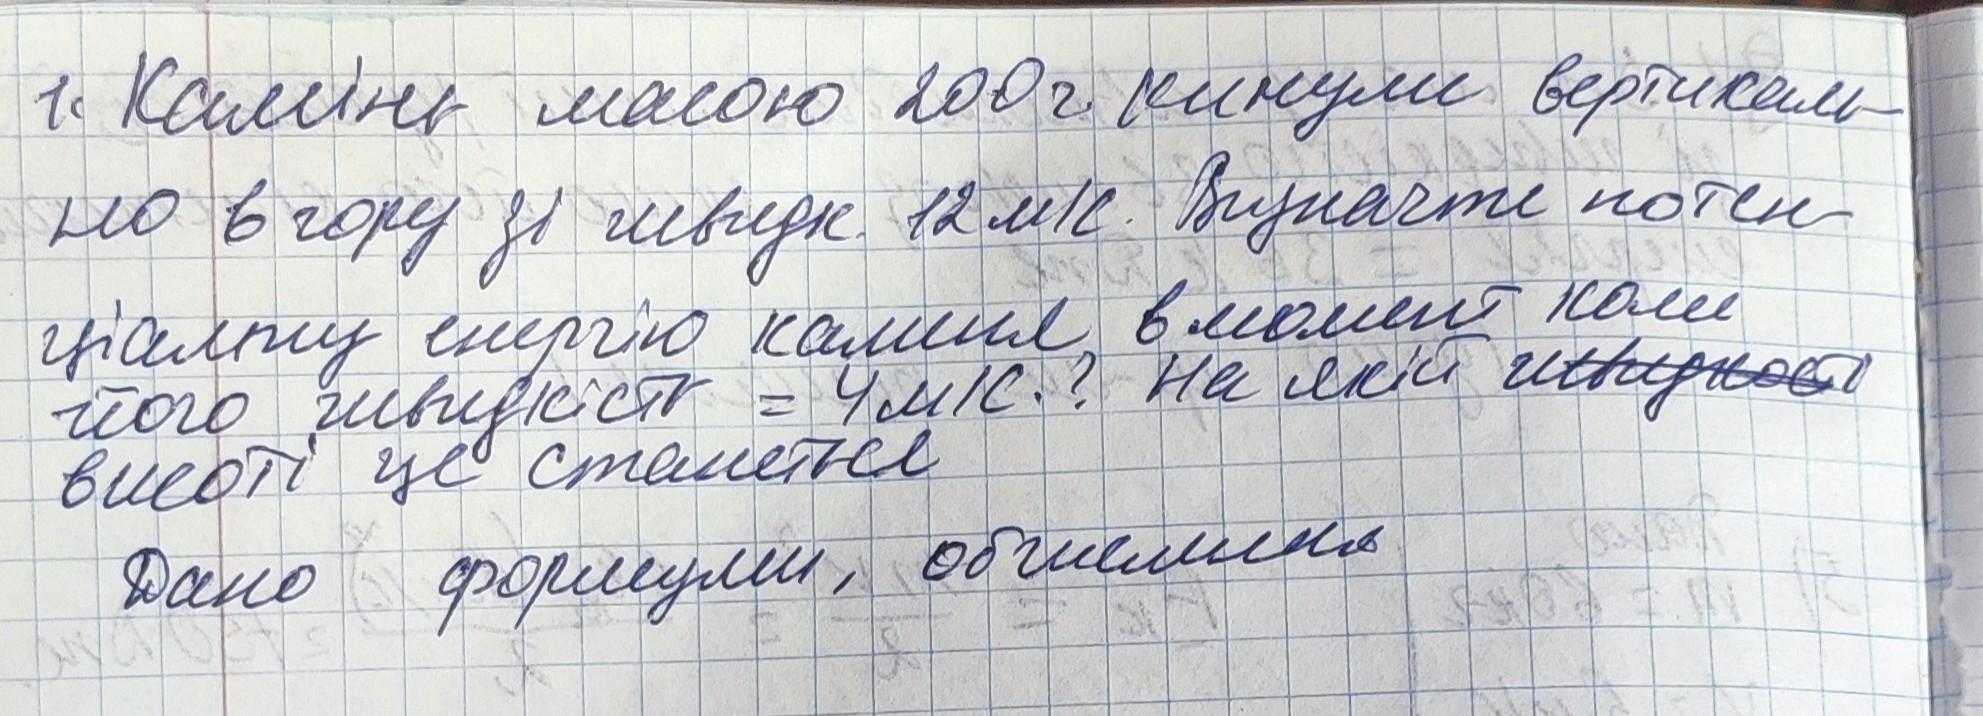 1. Камінь масою 200 г. кинули вертикаль-
но вгору зі швидк. 12 м/с. Визначте потен-
ціальну енергію каменя в момент коли
його швидкість = 4 м/с.? На якій швидкості
висоті це станеться
Дано формули, обчислення